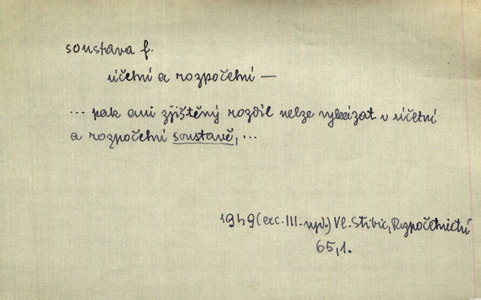 soustava f.
účetní a rozpočetní —
... pak ani zjištěný rozdíl nelze vykázat v účetní
a rozpočetní soustavě, ...
1949 (exc. III. vyd.) Vl. Stibic, Rozpočetnictví
65,1.